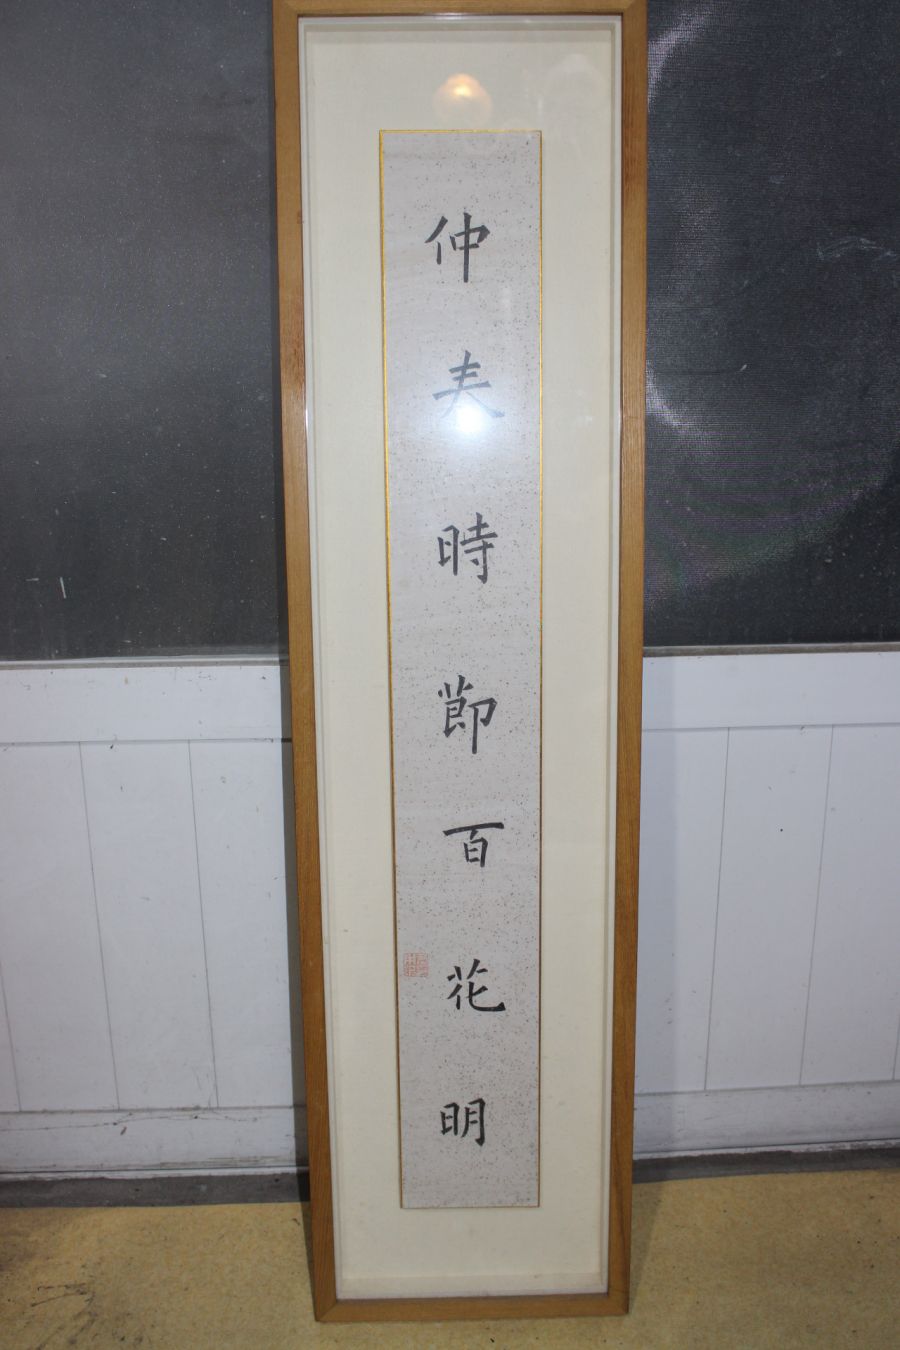 仲春時節百花明